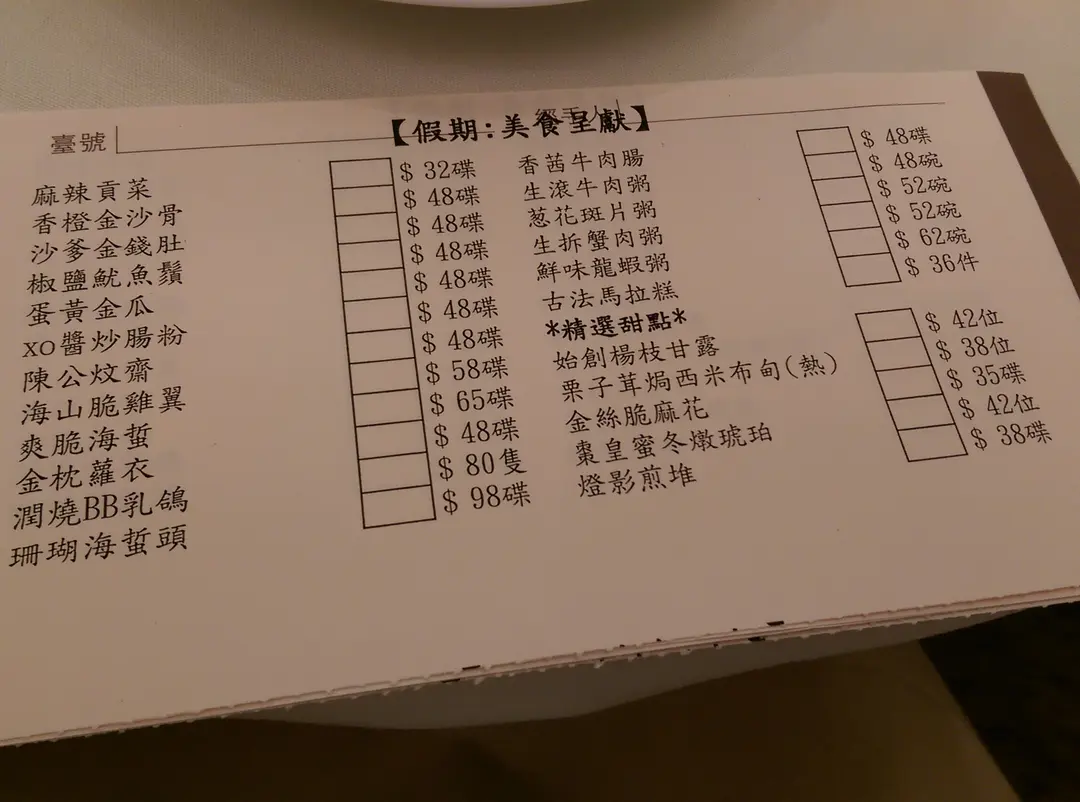 臺號
經手人
【假期:美食呈獻】
麻辣貢菜 $ 32碟
香橙金沙骨 $ 48碟
沙爹金錢肚 $ 48碟
椒鹽魷魚鬚 $ 48碟
蛋黃金瓜 $ 48碟
XO醬炒腸粉 $ 48碟
陳公炆齋 $ 48碟
海山脆雞翼 $ 58碟
爽脆海蜇 $ 65碟
金枕蘿衣 $ 48碟
潤燒BB乳鴿 $ 80隻
珊瑚海蜇頭 $ 98碟
香茜牛肉腸 $ 48碟
生滾牛肉粥 $ 48碗
葱花斑片粥 $ 52碗
生拆蟹肉粥 $ 52碗
鮮味龍蝦粥 $ 62碗
古法馬拉糕 $ 36件
*精選甜點*
始創楊枝甘露 $ 42位
栗子茸焗西米布甸(熱) $ 38位
金絲脆麻花 $ 35碟
棗皇蜜冬燉琥珀 $ 42位
燈影煎堆 $ 38碟